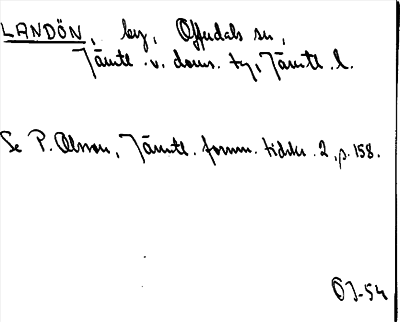 LANDÖN, by, Offerdals sn,
Jämtl. v. doms. tg, Jämtl. l.
Se P. Olsson, Jämtl. fornm. tidskr. 2, p. 158.
ÖJ-54